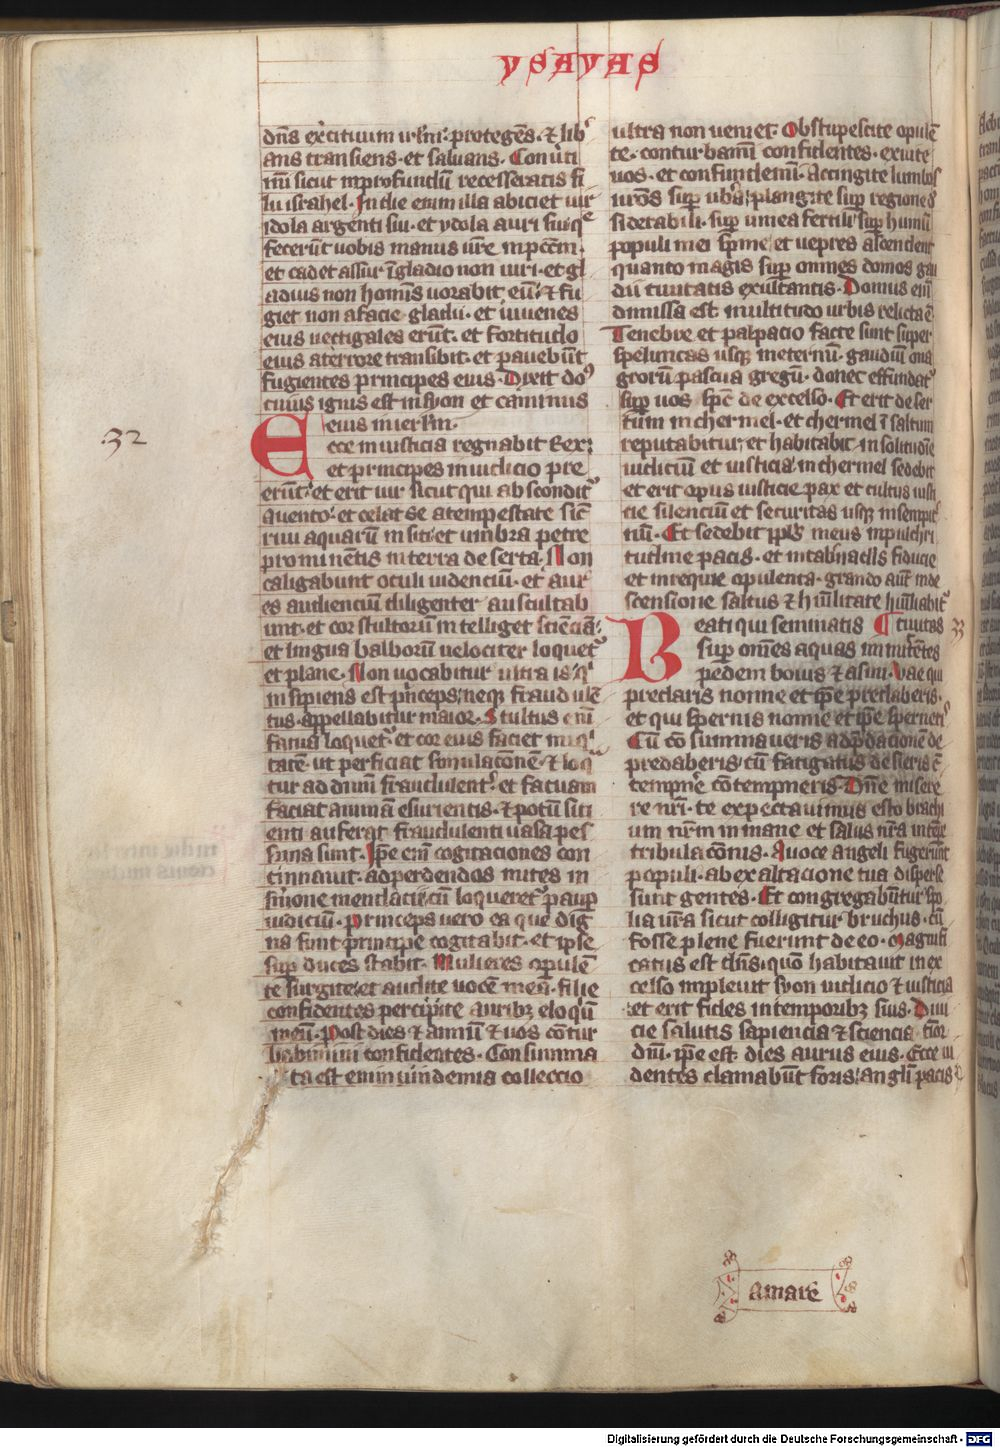 YSAYAS
dn̄s ex̄cituum ur̄lm: protegēs. ⁊ lib͛
ans transiens. et saluans. Conūti
mī sicut inprofundū recesseratis fi
lii israhel. In die enim illa abiciet uir
idola argenti sui. et ydola auri sui q̄
fecerūt uobis manus ur̄e inpctm̄.
et cadet assur ī gladio non uiri. et gl
adius non hominis uorabit eū. ⁊ fu
giet non afacie gladii. et iuuenes
eius uectigales erūt. et fortitudo
eius aterrore transibit. et pauebūt
fugientes principes eius. Dixit do⁹
cuius ignis est insyon et caminus
eius inierl̄m.
32
Ecce iniusticia regnabit Rex:
et principes iniudicio pre
erūt: et erit uir sicut qui abscondit͛
auento. et celat se atempestate sic̄
riui aquarū insiti et umbra petre
prominētis interra deserta. Non
caligabunt oculi uidenciū. et aur
es audienciū diligenter auscultab
unt. et cor stultorū intelliget scienciā:
et lingua balborū uelociter loquet͛
et plane. Non uocabitur ultra is q͛
insipiens est p̄nceps: neq̄ fraudulē
tus. appellabitur maior. Stultus enī
fatua loquet͛. et cor eius faciet iniq͛
tatē. ut perficiat simulatōnē. ⁊ loq͛
tur ad dnm̄ fraudulent͛. et factuam
faciat animā esurientis. ⁊ potū siti
enti auferat. fraudulenti uasa pes
sima sunt. Ipse enī cogitaciones con
cinnauit. adperdendos mites in
sm̄one mendacii: cū loqueret͛ paup̄
iudiciū. princeps uero ea que dig
na sunt principe cogitabit. et ipse
sup̄ duces stabit. Mulieres opulēn
te surgite: et audite uocē meā. filie
confidentes percipite auribꝫ eloquū
meū. Post dies ⁊ annū ⁊ uos cōtur
babimini confidentes. Consumma
ta est enim uindemia colleccio
ultra non ueniet. Obstupescite opulē
te. conturbamī confidentes. exuite
uos. et confundemī. Accingite lumbos
ur̄os sup̄ ub̄a: plangite sup̄ regione
desiderabili. sup̄ uinea fertili: sup̄ humū
populi mei spīne et uepres ascendent
quanto magis sup̄ omnes domos gau
dii ciuitatis exultantis. Domus enī
dimissa est multitudo urbis relicta ē
Tenebre et palpacio facte sunt super
speluncas usq̄ ineternū. gaudiū ona
grorū pascua gregū. donec effundat͛
sup̄ uos sp̄c de excelso. Et erit deser
tum inchermel. et chermel ī saltum
reputabitur, et habitabit insolitudīe
iudiciū et iusticia. in chermel sedebit
et erit opus iusticie pax et cultus iusti
cie silenciū et securitas usq̄ insempit͛
nū. Et sedebit pp̄ls meus inpulchri
tudine pacis. et intab̄naclis fiducie
et inrequie opulenta. grando aut̄ inde
scensione saltus ⁊ hūilitate hūiliabit͛
Beati qui seminatis Ciuitas
33
sup̄ omēs aquas inmittētes
pedem bouis ⁊ asini. Vae qui
predaris nonne et ip̄e predaberis.
et qui spernis nonne et ip̄e sperneris.
Cū cō summaueris adp̄dacionē de
predaberis. cū fatigatus desieris cō
tempnē cōtempneris. Dn̄e misere
re nr̄i. te expectauimus esto brachi
um nr̄m inmane et salus nr̄a intēpe
tribulacōnis. Auoce angeli fugerunt
populi. ab exaltacione tua disperse
sunt gentes. Et congregabūtur spo
lia ur̄a sicut colligitur bruchus. cū
fosse plene fuerint de eo. Magnifi
catus est dn̄s. quō habitauit inex
celso impleuit syon iudicio ⁊ iusticia
et erit fides intemporibꝫ suis. Diui
cie salutis sapiencia ⁊ sciencia tīor
dnī. ip̄e est dies aurus eius. Ecce ui
dentes clamabūt foris: angli pacis
amare
Digitalisierung gefördert durch die Deutsche Forschungsgemeinschaft - DFG